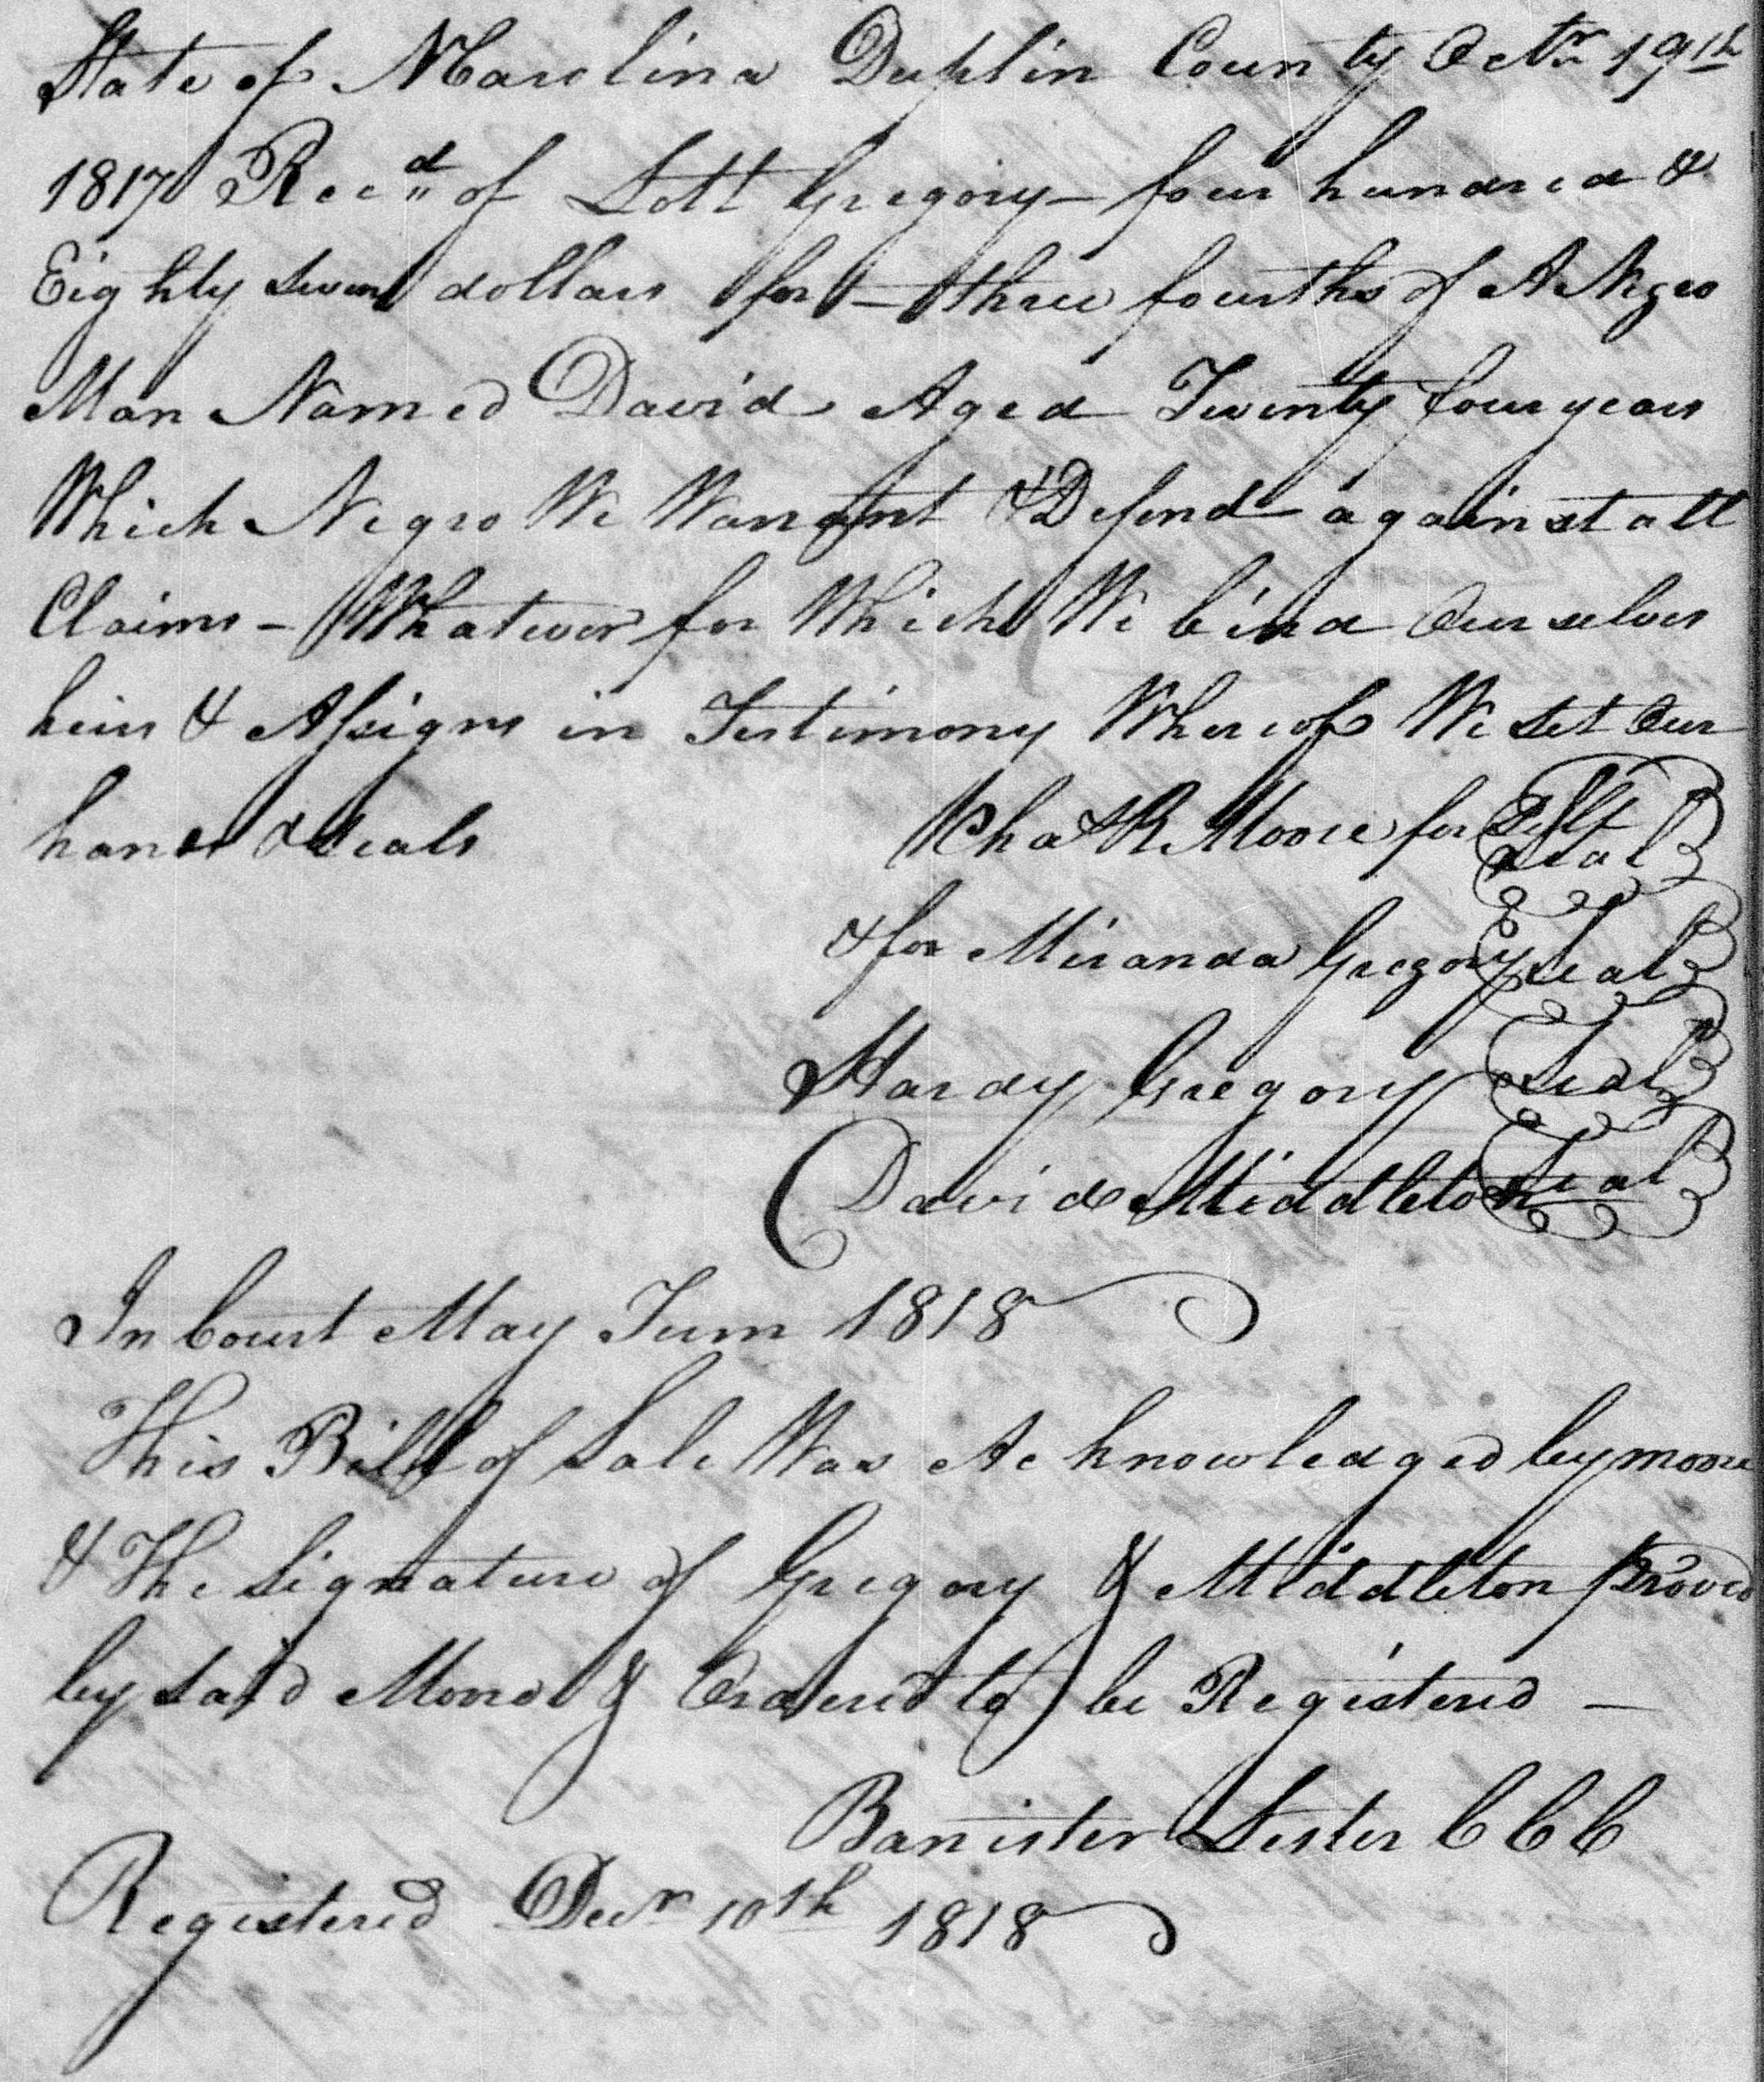 State of N Carolina Duplin County Octr 19th
1817 Recd of Lott Gregory - four hundred &
Eighty Seven dollars for - three fourths of A Negro
Man Named David Aged Twenty four years
Which Negro We Warrant & Defend against all
Claims - Whatever for Which We bind Our selves
heirs & Assigns in Testimony Whereof We set Our
hands & seals Chas R Moore for Self seal
& for Miranda Gregory seal
Hardy Gregory Seal
David Middleton Seal
In Court May Term 1818
This Bill of Sale Was Acknowledged by moore
& The Signature of Gregory & Middleton proved
by said Moore & Ordered to be Registered —
Banister Lester C C C
Registered Decr 10th 1818